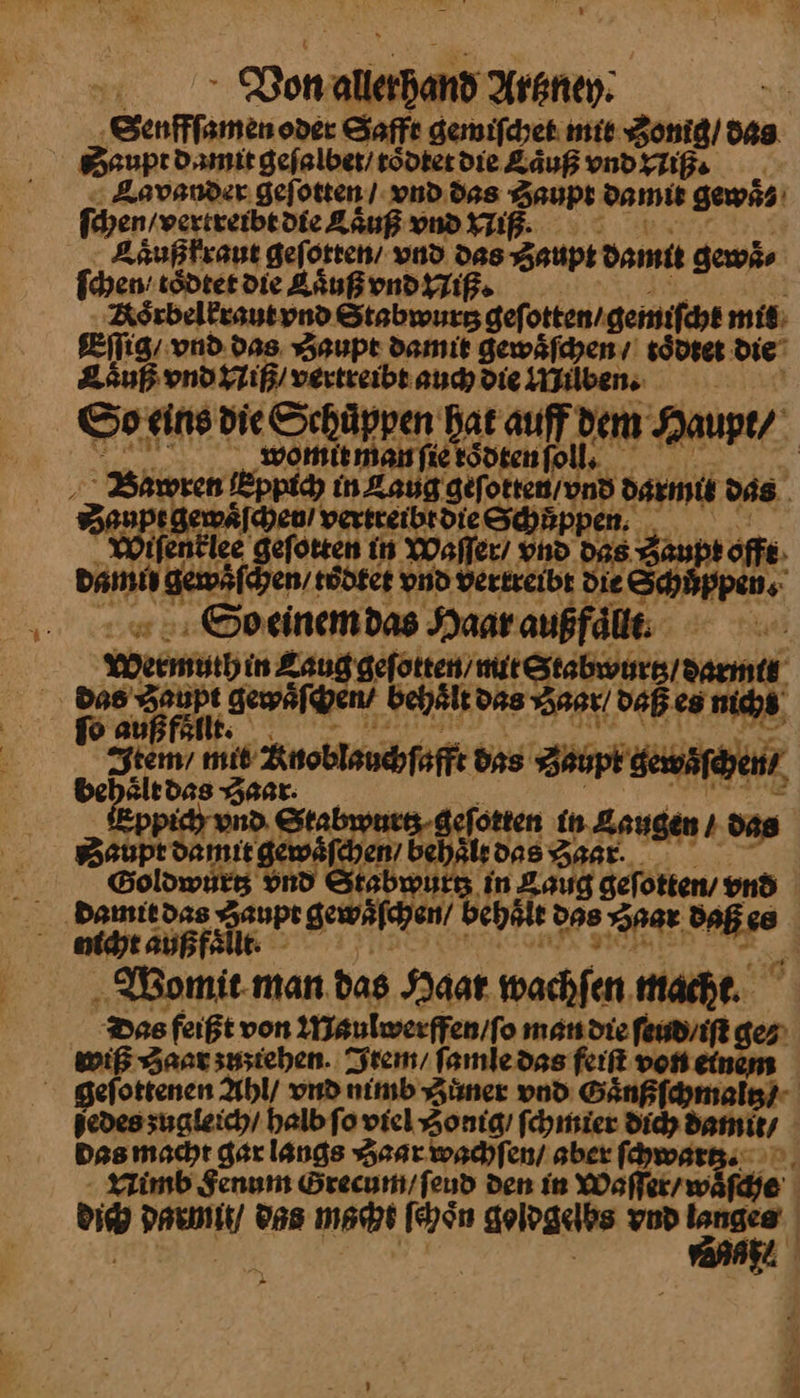 Von allerhand Artzney.
Senffſamen oder Safft gemiſchet mit Honig/ das
Haupt damit geſalbet/ toͤdtet die Laͤuß vnd Niß.
Lavander geſotten / vnd das Haupt damit gewaͤ⸗
ſchen/ vertreibt die Laͤuß vnd Niß.
Laͤußkraut geſotten/ vnd das Haupt damit gewaͤ⸗
ſchen/ toͤdtet die Laͤuß vnd Niß.
Koͤrbelkraut vnd Stabwurtz geſotten/ gemiſcht mit
Eſſig/ vnd das Haupt damit gewaͤſchen / toͤdtet die
Laͤuß vnd Niß/ vertreibt auch die Milben.
So eins die Schuͤppen hat auff dem Haupt/
womit man ſie toͤdten ſoll.
Bawren Eppich in Laug geſotten/ vnd darmit das
Haupt gewaͤſchen/ vertreibt die Schuͤppen.
Wiſenklee geſotten in Waſſer/ vnd das Haupt offt
damit gewaͤſchen/ toͤdtet vnd vertreibt die Schuͤppen.
So einem das Haar außfaͤllt.
Wermuth in Laug geſotten/ mit Stabwurtz/ darmit
das Haupt gewaͤſchen/ behaͤlt das Haar/ daß es nicht
ſo außfaͤllt.
Item/ mit Knoblauchſafft das Haupt gewaͤſchen/
behaͤlt das Haar.
Eppich vnd Stabwurtz geſotten in Laugen / das
Haupt damit gewaͤſchen/ behaͤlt das Haar.
Goldwurtz vnd Stabwurtz in Laug geſotten/ vnd
damit das Haupt gewaͤſchen/ behaͤlt das Haar daß es
nicht außfaͤllt.
Womit man das Haar wachſen macht.
Das feißt von Maulwerffen/ ſo man die ſeud/ iſt ge⸗
wiß Haar zuziehen. Item/ ſamle das feiſt von einem
geſottenen Ahl/ vnd nimb Huͤner vnd Gaͤnßſchmaltz/
jedes zugleich/ halb ſo viel Honig/ ſchmier dich damit/
das macht gar langs Haar wachſen/ aber ſchwartz.
Nimb Fenum Grecum/ ſeud den in Waſſer/ waͤſche
dich darmit/ das macht ſchoͤn goldgelbs vnd langes
Haar/